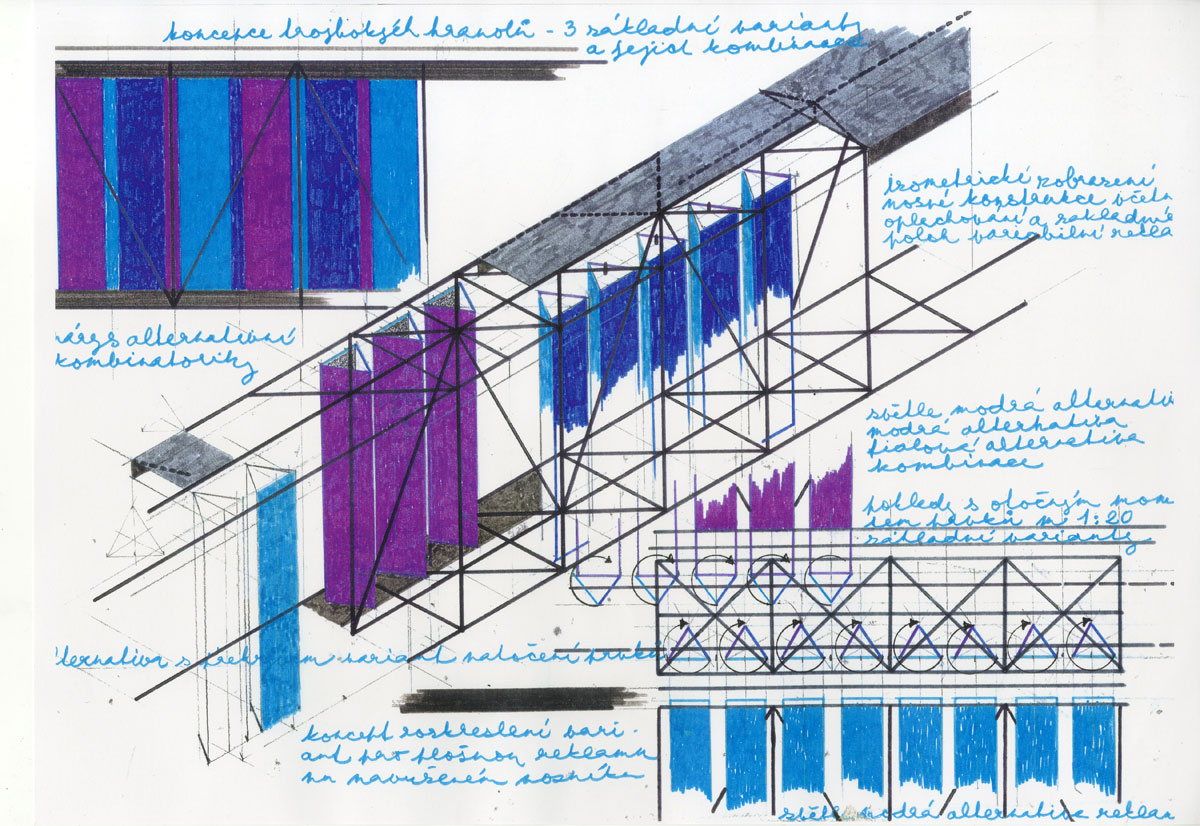 koncepce trojbokých hranolů - 3 základní varianty
a jejich kombinace
izometrické zobrazení
nosné konstrukce včetn
oplechování a základní
poloh variabilní rekla
nárys alternativní
kombinatoriky
světle modrá alternati
modrá alternativa
fialová alternativa
kombinace
pohledy s otočným mom
tem prvků m 1:20
základní varianty
lternativa s variant natočení prvků
koncept rozkreslení vari-
ant pro plošnou reklamu
na navrženém nosníku
světle modrá alternativa reklam